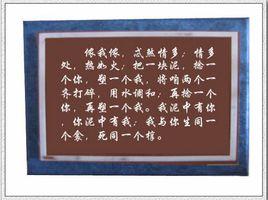 侬我侬，忒煞情多；情多
处，热如火；把一块泥，捻一
个你，塑一个我，将咱两个一
齐打碎，用水调和；再捻一个
你，再塑一个我。我泥中有你
，你泥中有我；我与你生同一
个衾，死同一个椁。